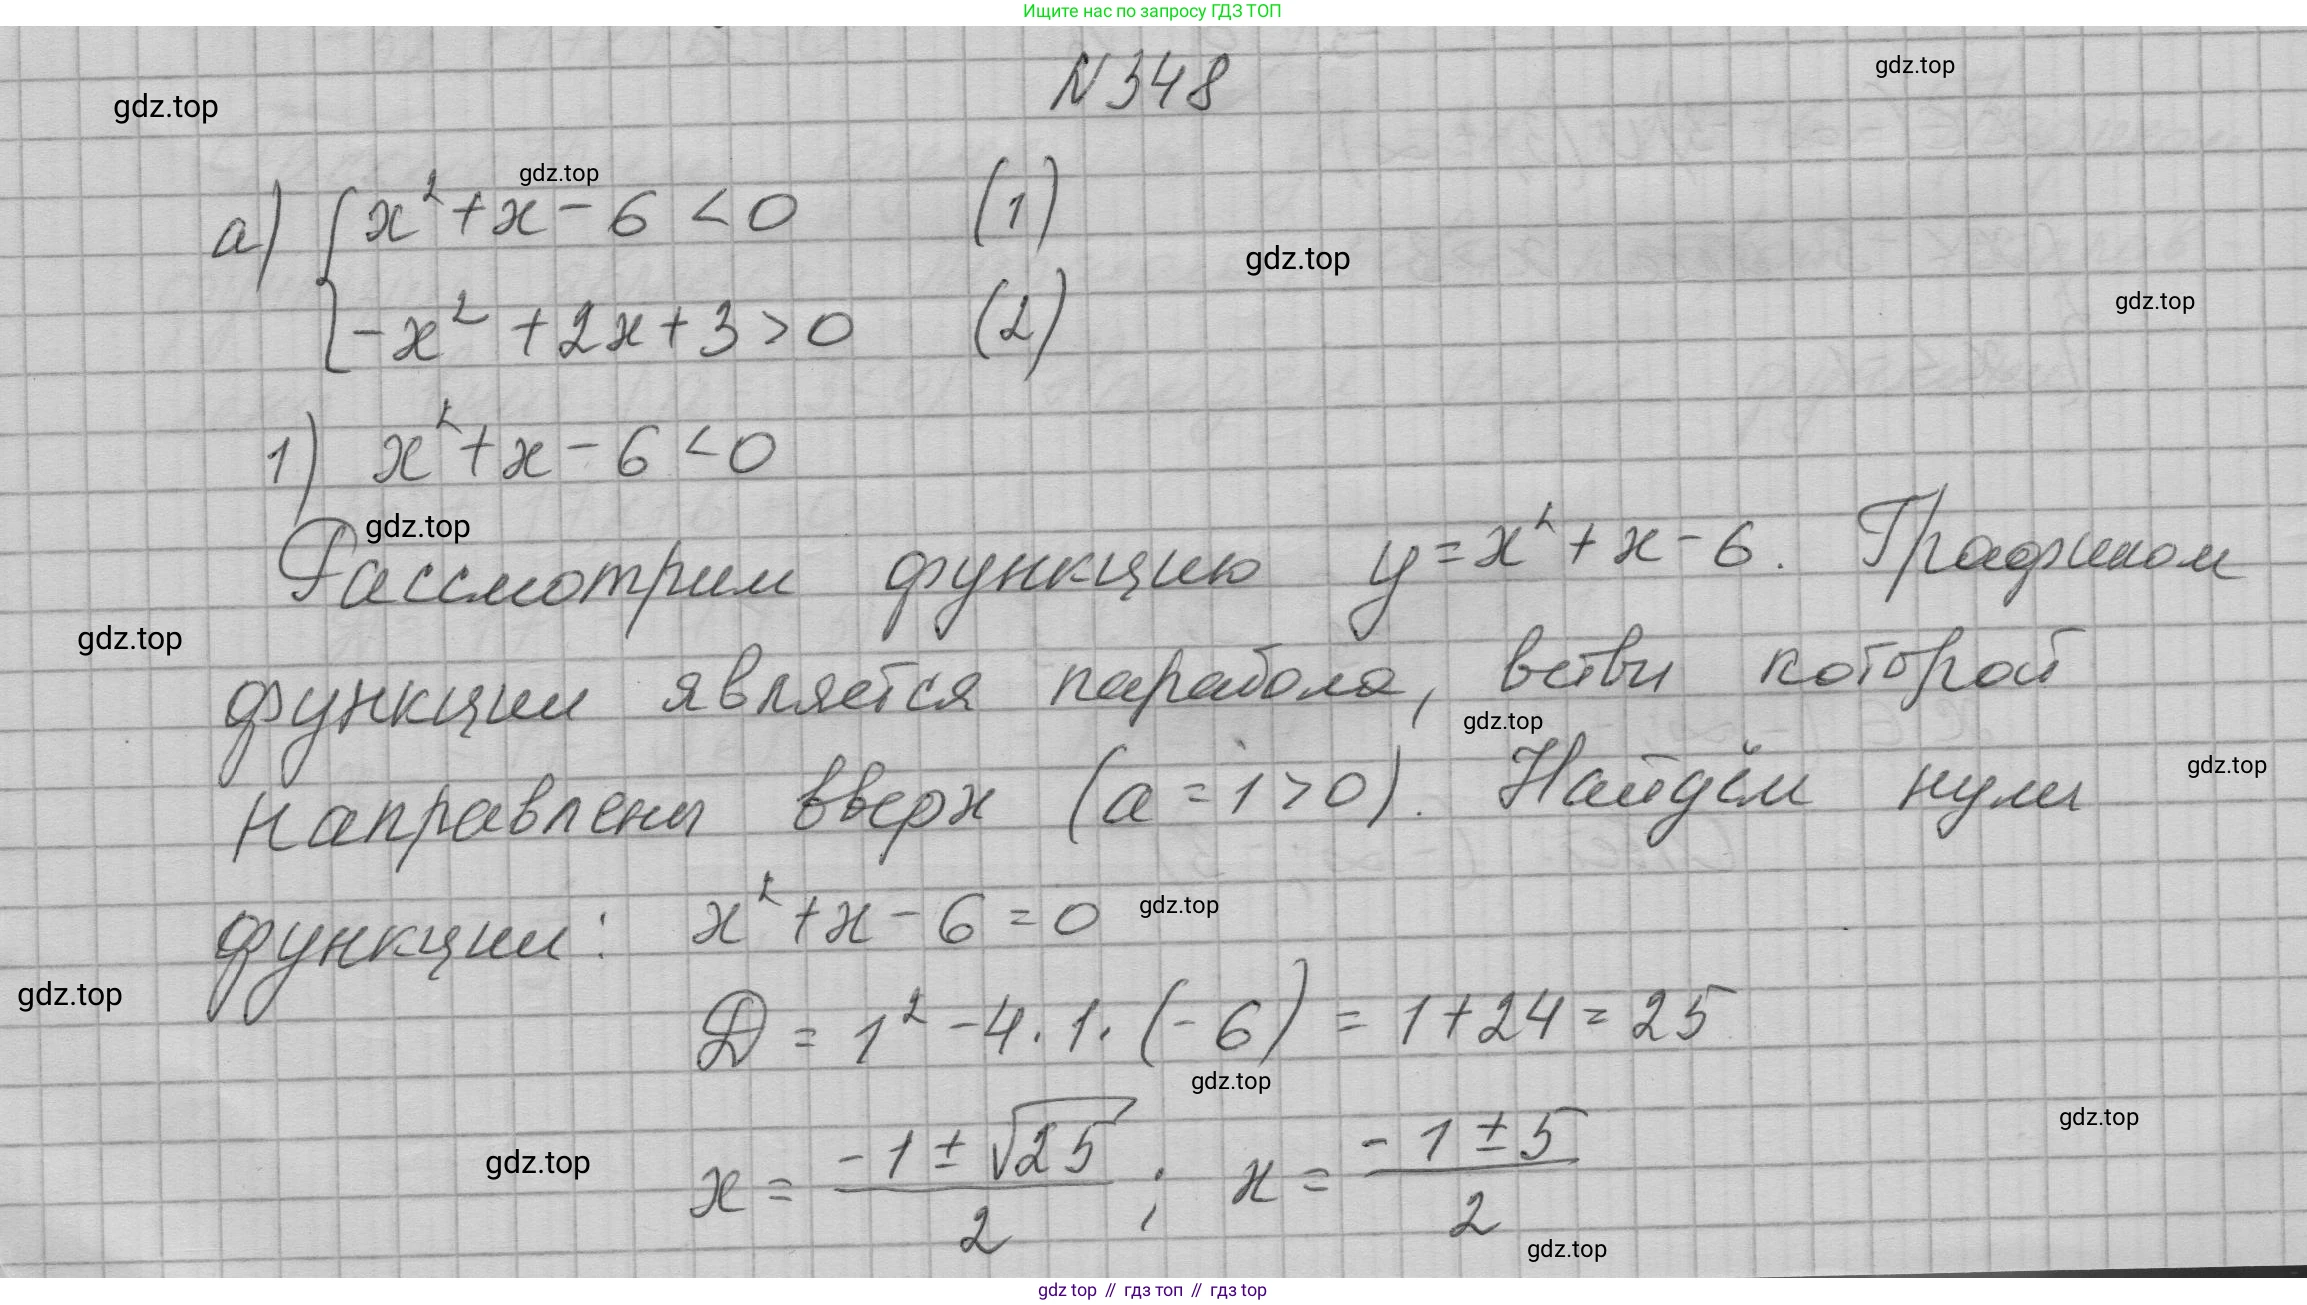 Ищите нас по запросу ГДЗ ТОП
N 348
gdz.top
gdz.top
gdz.top
а) { x² + x - 6 < 0 (1)
gdz.top
-x² + 2x + 3 > 0 (2)
gdz.top
1) x² + x - 6 < 0
gdz.top
Рассмотрим функцию y = x² + x - 6. Графиком
gdz.top
функции является парабола, ветви которой
gdz.top
направлены вверх (a = 1 > 0). Найдём нули
gdz.top
функции: x² + x - 6 = 0
gdz.top
gdz.top
D = 1² - 4 · 1 · (-6) = 1 + 24 = 25
gdz.top
gdz.top
gdz.top
x = (-1 ± √25)/2 ; x = (-1 ± 5)/2
gdz.top
gdz top // гдз топ // гдз top